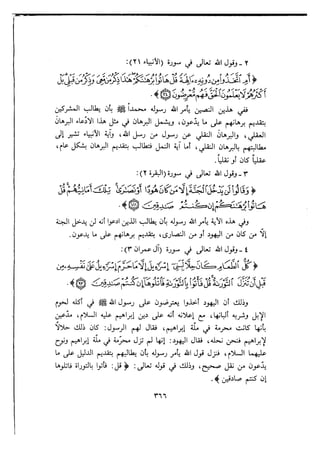 ٢ - وقول الله تعالى في سورة (الأنبياء ٢١):
﴿ أَمِ ٱتَّخَذُوا۟ مِن دُونِهِۦٓ ءَالِهَةً قُلْ هَاتُوا۟ بُرْهَـٰنَكُمْ هَـٰذَا ذِكْرُ مَن مَّعِىَ وَذِكْرُ مَن قَبْلِى بَلْ
أَكْثَرُهُمْ لَا يَعْلَمُونَ ٱلْحَقَّ فَهُم مُّعْرِضُونَ ﴾.
ففي هذين النصين يأمر الله رسوله محمداً ﷺ بأن يطالب المشركين
بتقديم برهانهم على ما يدعون، ويشمل البرهان في مثل هذا الادعاء البرهان
العقلي، والبرهان النقلي عن رسول من رسل الله، وآية الأنبياء تشير إلى
مطالبتهم بالبرهان النقلي، أما آية النمل فتطالب بتقديم البرهان بشكل عام،
عقلياً كان أو نقلياً.
٣ - وقول الله تعالى في سورة (البقرة ٢):
﴿ وَقَالُوا۟ لَن يَدْخُلَ ٱلْجَنَّةَ إِلَّا مَن كَانَ هُودًا أَوْ نَصَـٰرَىٰ تِلْكَ أَمَانِيُّهُمْ قُلْ
هَاتُوا۟ بُرْهَـٰنَكُمْ إِن كُنتُمْ صَـٰدِقِينَ ﴾.
وفي هذه الآية يأمر الله رسوله بأن يطالب الذين ادعوا أنه لن يدخل الجنة
إلا من كان من اليهود أو من النصارى، بتقديم برهانهم على ما يدعون.
٤ - وقول الله تعالى في سورة (آل عمران ٣):
﴿ كُلُّ ٱلطَّعَامِ كَانَ حِلًّا لِّبَنِىٓ إِسْرَٰٓءِيلَ إِلَّا مَا حَرَّمَ إِسْرَٰٓءِيلُ عَلَىٰ نَفْسِهِۦ مِن
قَبْلِ أَن تُنَزَّلَ ٱلتَّوْرَىٰةُ قُلْ فَأْتُوا۟ بِٱلتَّوْرَىٰةِ فَٱتْلُوهَآ إِن كُنتُمْ صَـٰدِقِينَ ﴾.
وذلك أن اليهود أخذوا يعترضون على رسول الله ﷺ في أكله لحوم
الإبل وشربه ألبانها، مع إعلانه أنه على دين إبراهيم عليه السلام، مدعين
بأنها كانت محرمة في ملّة إبراهيم، فقال لهم الرسول: كان ذلك حلالاً
لإبراهيم فنحن نحله، فقال اليهود: إنها لم تزل محرّمة في ملّة إبراهيم ونوح
عليهما السلام، فنزل قول الله يأمر رسوله بأن يطالبهم بتقديم الدليل على ما
يدعون من نقل صحيح، وذلك في قوله تعالى: ﴿ قل: فأتوا بالتوراة فاتلوها
إن كنتم صادقين ﴾.
٣٦٦